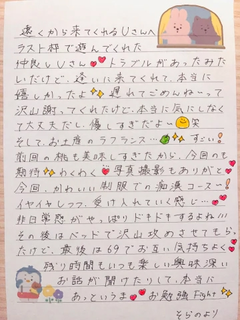 遠くから来てくれるUさんへ
ラスト枠で選んでくれた
仲良しUさん トラブルがあったみた
いだけど、逢いに来てくれて、本当に
嬉しかったよ 遅れてごめんねって
沢山謝ってくれたけど、本当に気にしなく
て大丈夫だし、優しすぎだよぃ 笑
そして、お土産のラフランス… すごい!
前回の桃も美味しすぎたから、今回のも
期待 わくわく 写真撮影もありがと
今回、かわいい制服での痴漢コース…!
イヤイヤしつつ、受け入れていく感じ…
非日常感がやっぱりドキドキするよねぃ!!
その後はベッドで沢山攻めさせてもら
たけど、最後は69でお互い気持ちよく
残り時間もいつも楽しい興味深い
お話が聞けたりして、本当に
あっというま お勉強Fight
そらのより